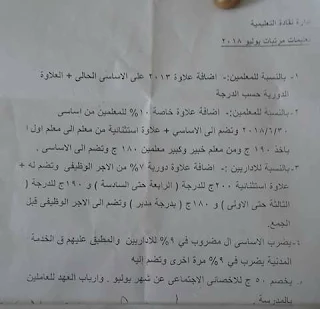 إدارة نقادة التعليمية
تعليمات مرتبات يوليو ٢٠١٨
١- بالنسبة للمعلمين:- اضافة علاوة ٢٠١٣ على الاساسى الحالى + العلاوة
الدورية حسب الدرجة
٢- بالنسبة للمعلمين:- اضافة علاوة خاصة ١٠% للمعلمين من اساسى
٢٠١٨/٦/٣٠ وتضم الى الاساسي + علاوة استثنائية من معلم الى معلم اول ا
ياخذ ١٩٠ ج ومن معلم خبير وكبير معلمين ١٨٠ ج تضم الى الاساسى .
٣- بالنسبة للاداريين :- اضافة علاوة دورية ٧% من الاجر الوظيفى وتضم له +
علاوة استثنائية ٢٠٠ج للدرجة ( الرابعة حتى السادسة ) و ١٩٠ج للدرجة (
الثالثة حتى الاولى ) و ١٨٠ج ( بدرجة مدير ) وتضم الى الاجر الوظيفى قبل
الجمع.
٤- يضرب الاساسى ال مضروب في ٩% للاداريين والمطبق عليهم ق الخدمة
المدنية يضرب في ٩% مرة اخرى وتضم إليه
يخصم ٥٠ ج للاخصائى الاجتماعى عن شهر يوليو . وارباب العهد للعاملين
بالمدرسة .